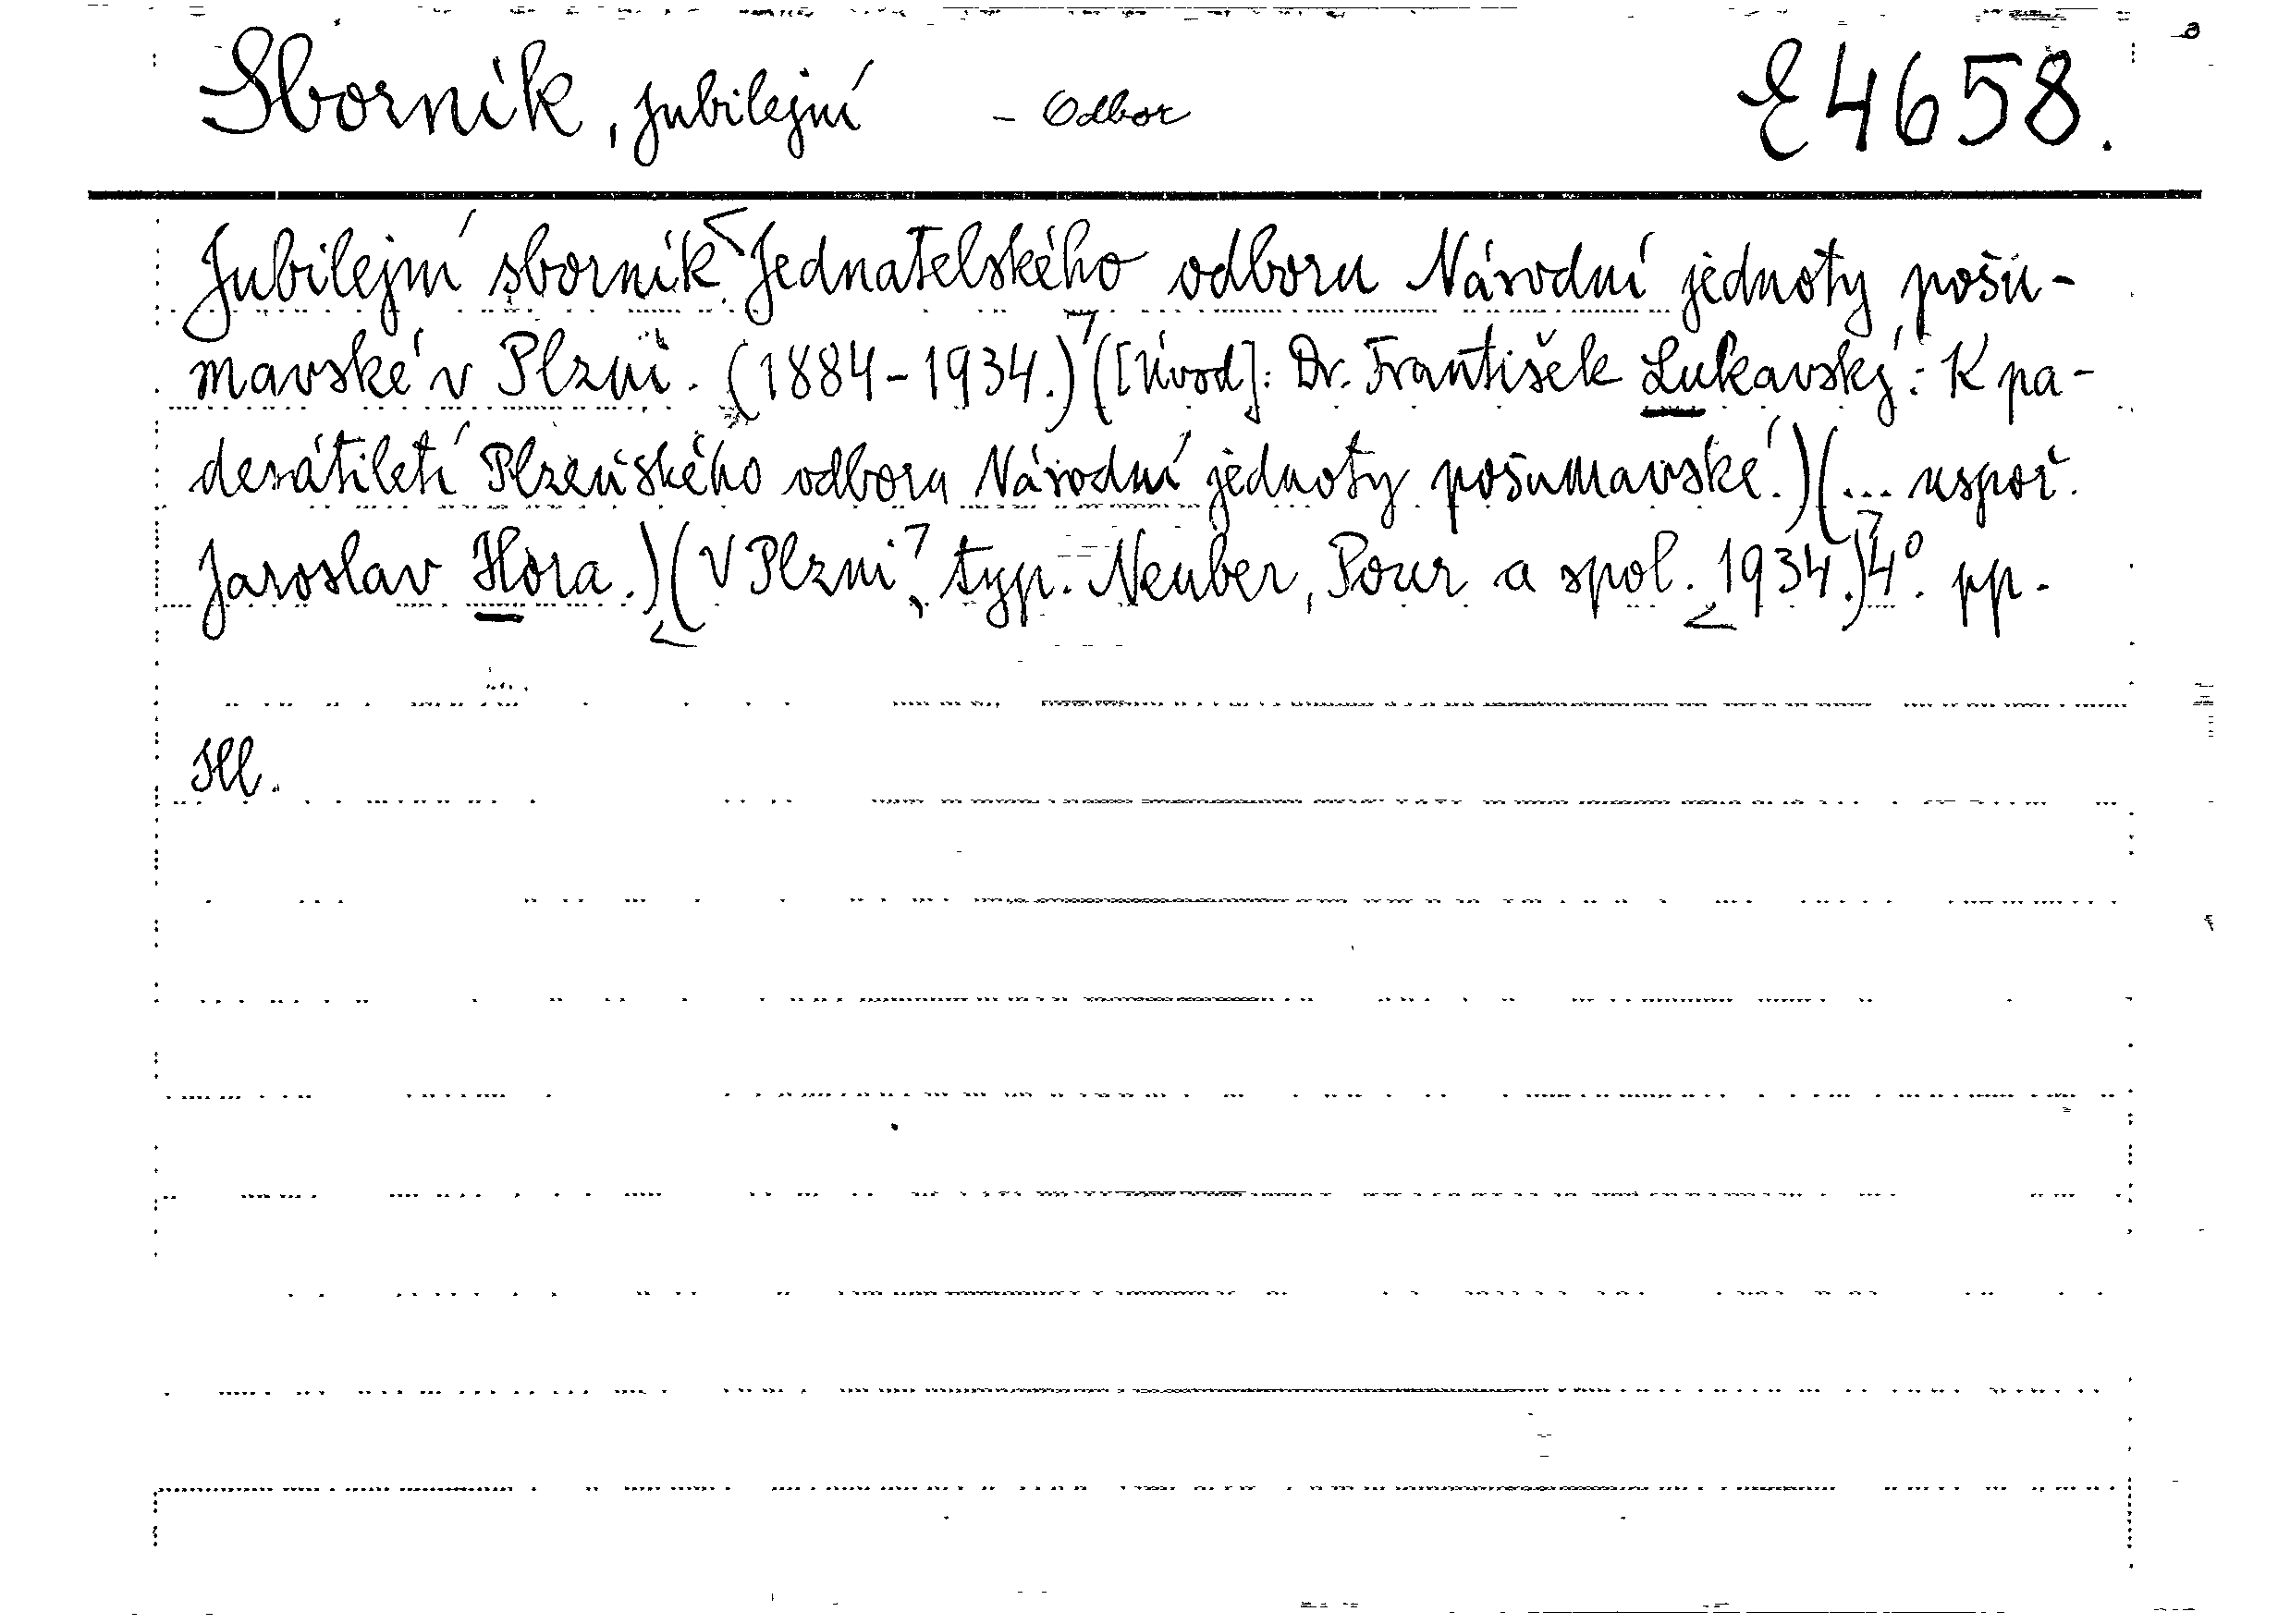 Sborník, jubilejní – Odbor E 4658.
Jubilejní sborník Jednatelského odboru Národní jednoty pošu-
mavské v Plzni. (1884-1934.) ([Úvod]: Dr. František Lukavský: K pa-
desátiletí Plzeňského odboru Národní jednoty pošumavské.) (... uspoř.
Jaroslav Hora.) (V Plzni, typ. Neuber, Pour a spol. 1934.) 4°. pp.
Ill.